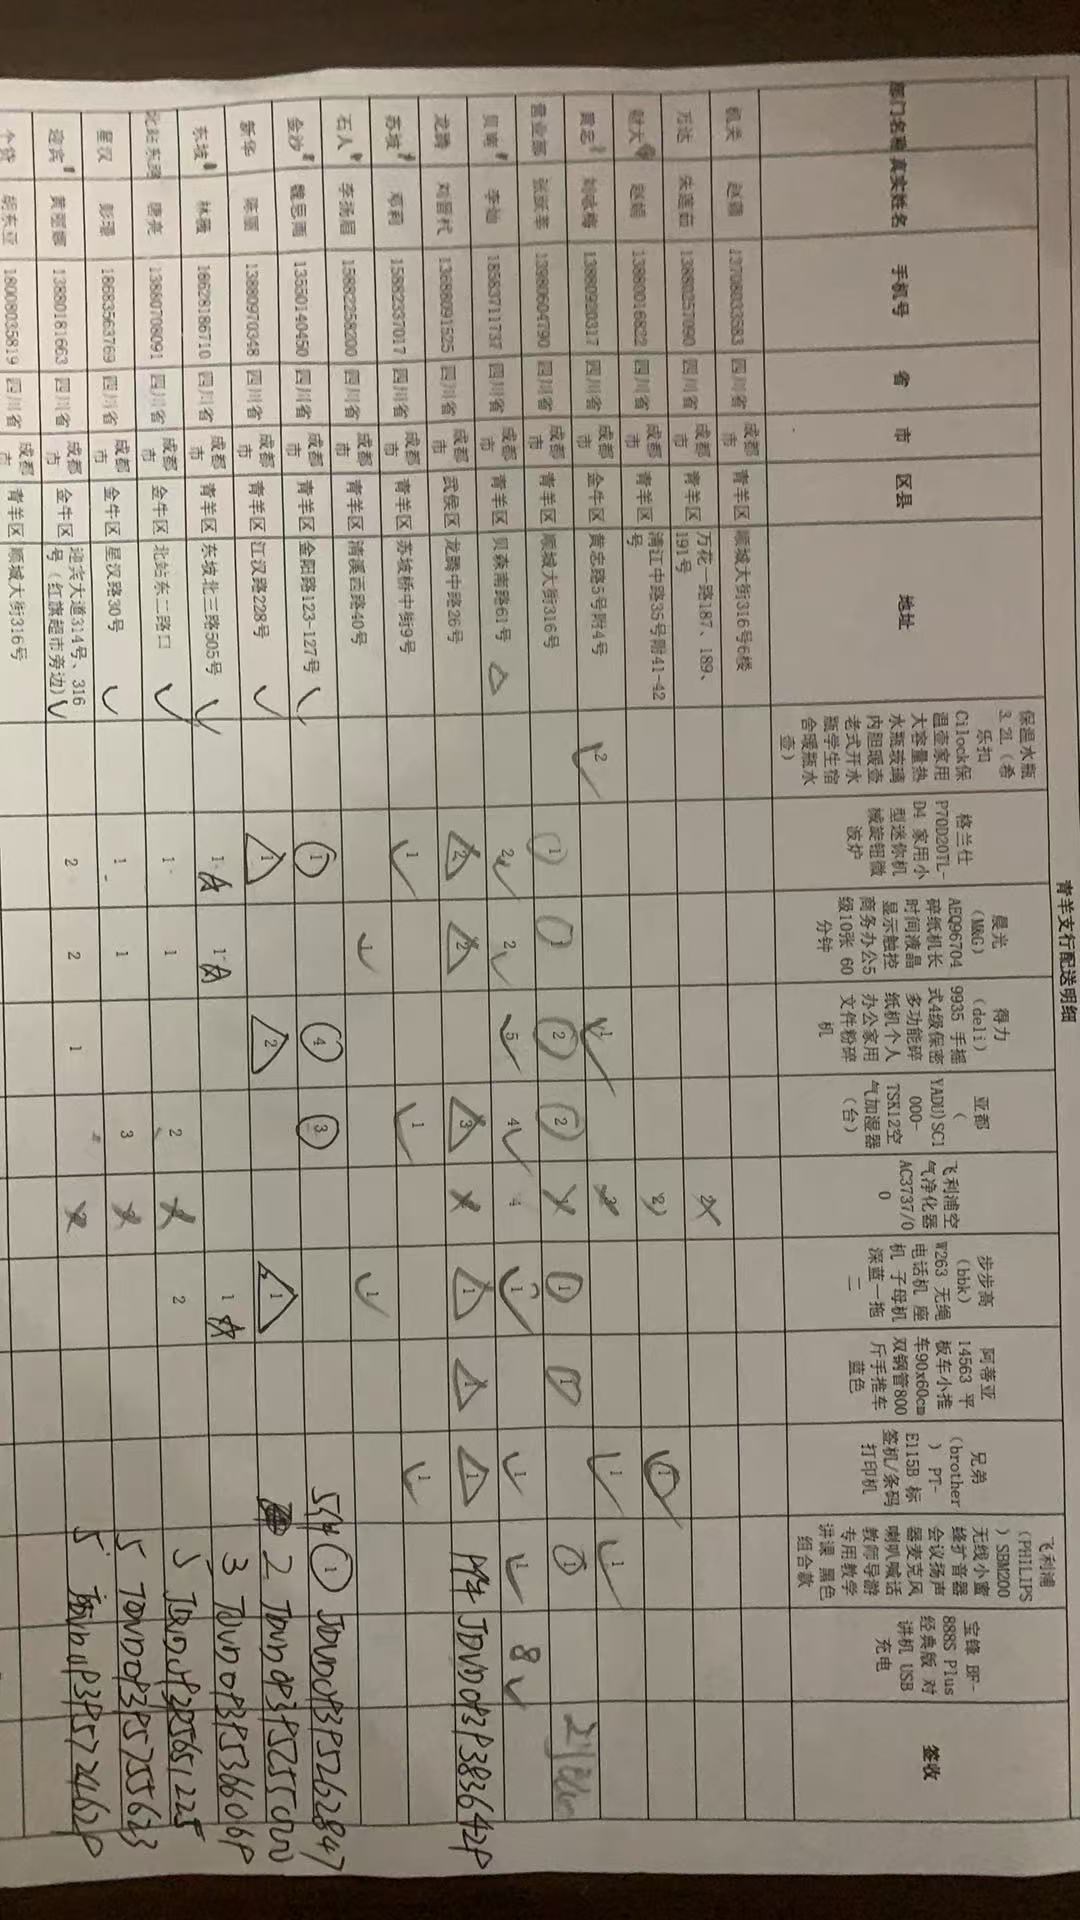 青羊支行配送明细
部门名称 真实姓名 手机号 省 市 区县 地址 保温水瓶3.2L（希乐扣Cilock保温壶家用大容量热水瓶玻璃内胆暖壶老式开水瓶学生宿舍暖瓶水壶） 格兰仕P70D20TL-D4 家用小型迷你机械旋钮微波炉 晨光（M&G）AEQ96704碎纸机长时间液晶显示触控商务办公5级10张 60分钟 得力（deli）9935 手摇式4级保密多功能碎纸机个人办公家用文件粉碎机 亚都（YADU)SC1000-TSK12空气加湿器（台） 飞利浦空气净化器AC3737/00 步步高（bbk）W263 无绳电话机 座机 子母机 深蓝一拖二 阿蒂亚14563 平板车小推车90x60cm双钢管800斤手推车 蓝色 兄弟（brother）PT-E115B 标签机/条码打印机 飞利浦（PHILIPS）SBM200无线小蜜蜂扩音器会议扬声器麦克风喇叭喊话教师导游专用教学讲课 黑色组合款 宝锋 BF-888S Plus 经典版 对讲机 USB充电 签收
机关 赵 13708033583 四川省 成都市 青羊区 顺城大街316号6楼
万达 朱莲茹 13880257090 四川省 成都市 青羊区 万花一路187、189、191号 2
财大 赵娟 13880016822 四川省 成都市 青羊区 清江中路35号附41-42号 2 1
黄忠 刘咏梅 13880920317 四川省 成都市 金牛区 黄忠路5号附4号 2 1 1 1
营业部 张 13980604790 四川省 成都市 青羊区 顺城大街316号 1 1 2 2 1 1 1
贝南 李灿 18583711737 四川省 成都市 青羊区 贝森南路61号 2 2 5 4 4 1 1 1 8
龙腾 刘晋代 13688091525 四川省 成都市 武侯区 龙腾中路26号 2 2 3 1 1 1 JDVD0P3P383642P
苏坡 邓莉 15882337017 四川省 成都市 青羊区 苏坡桥中街9号 1 1 1
石人 李扬眉 15882258200 四川省 成都市 青羊区 清溪西路40号 1 1
金沙 魏思雨 13550140450 四川省 成都市 青羊区 金阳路123-127号 1 4 3 5件 1 JDVD0P3P5262847
新华 陈丽 13880970348 四川省 成都市 青羊区 江汉路228号 1 2 1 2
东坡 林巍 18628186710 四川省 成都市 青羊区 东坡北三路505号 1 1 1 3 JDVD0P3P536606P
北站东路 唐亮 13880708091 四川省 成都市 金牛区 北站东二路口 1 1 2 2 5
星汉 彭珊 18683563769 四川省 成都市 金牛区 星汉路30号 1 1 3 5 JDVD0P3P5755623
迎宾 黄丽娜 13880181663 四川省 成都市 金牛区 迎宾大道314号、316号（红旗超市旁边） 2 2 1 5 JDVD0P3P572462P
个贷 胡东亚 18008035819 四川省 成都市 青羊区 顺城大街316号